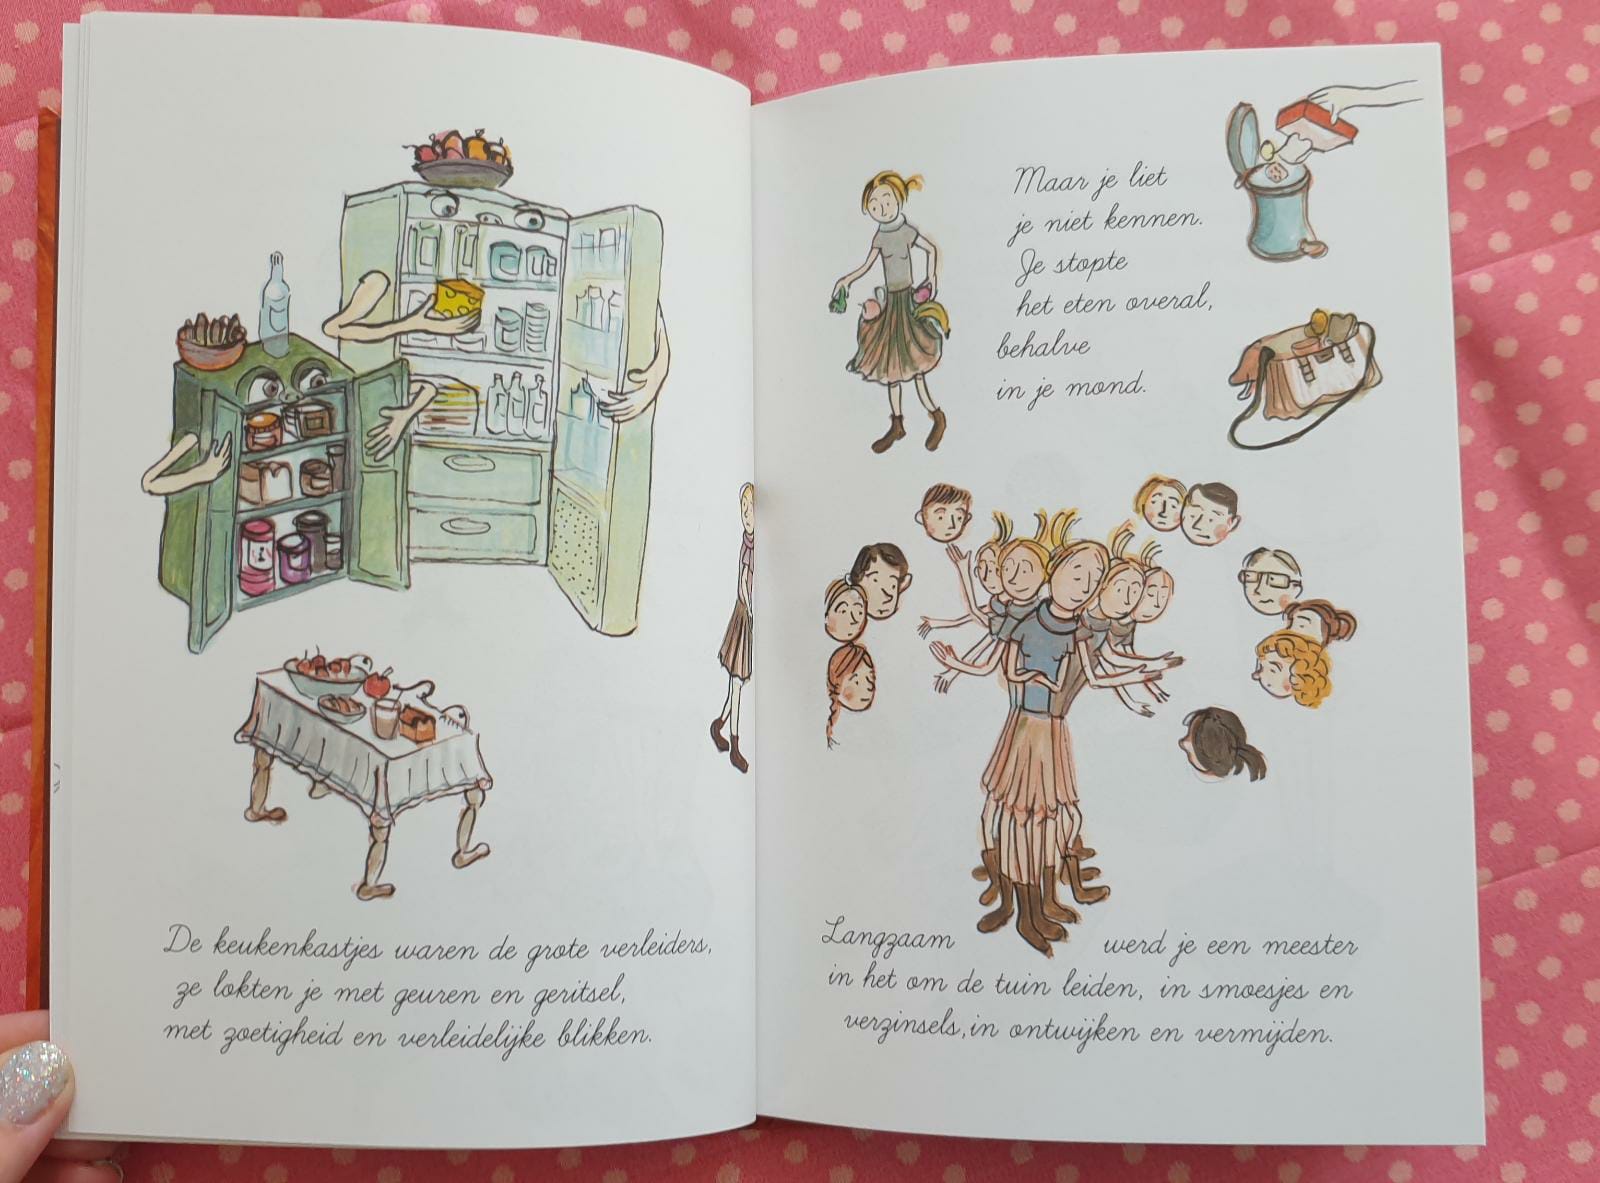 De keukenkastjes waren de grote verleiders,
ze lokten je met geuren en geritsel,
met zoetigheid en verleidelijke blikken.
Maar je liet
je niet kennen.
Je stopte
het eten overal,
behalve
in je mond.
Langzaam werd je een meester
in het om de tuin leiden, in smoesjes en
verzinsels, in ontwijken en vermijden.